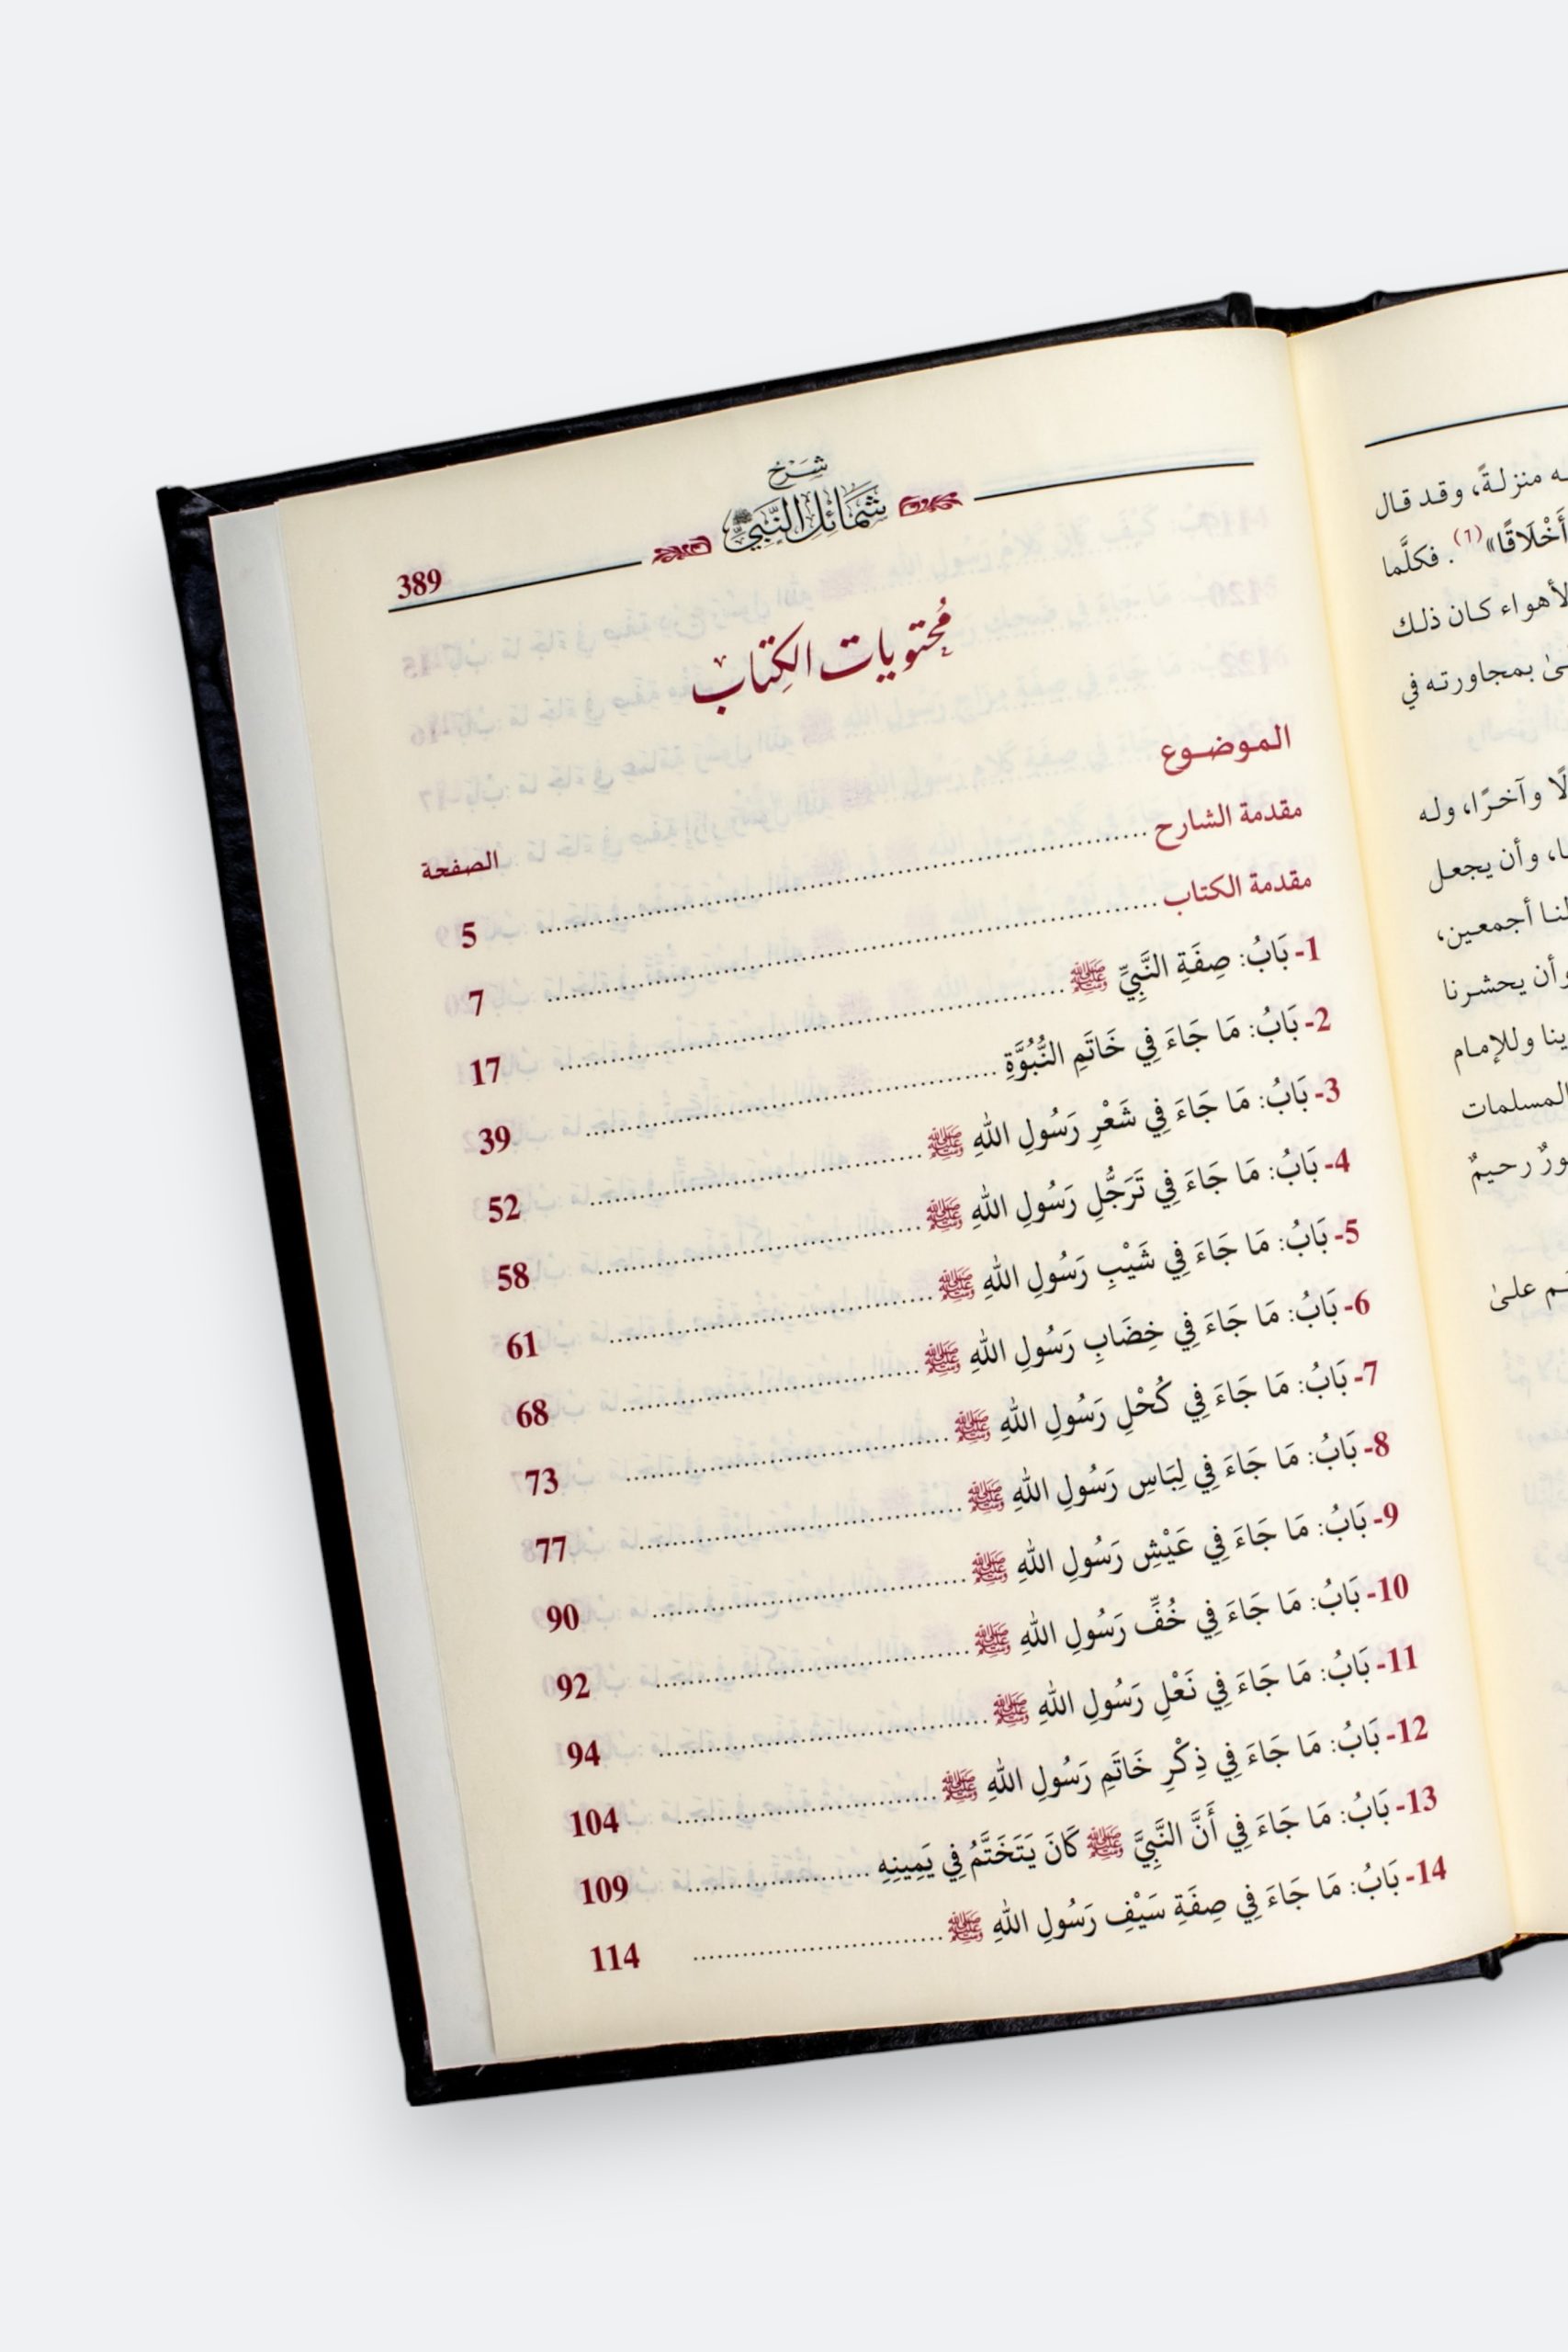 منزلةً، وقد قال
أَخْلَاقًا»(1). فكلَّما
كان ذلك
بمجاورته في
وآخرًا، وله
وأن يجعل
أجمعين،
وأن يحشرنا
وللإمام
المسلمات
رحيمٌ
علىٰ
شرح
شمائل النَّبِيِّ ﷺ
389
مُحتويات الكِتاب
الموضوع الصفحة
مقدمة الشارح 5
مقدمة الكتاب 7
1- بَابُ: صِفَةِ النَّبِيِّ ﷺ 17
2- بَابُ: مَا جَاءَ فِي خَاتَمِ النُّبُوَّةِ 39
3- بَابُ: مَا جَاءَ فِي شَعْرِ رَسُولِ اللهِ ﷺ 52
4- بَابُ: مَا جَاءَ فِي تَرَجُّلِ رَسُولِ اللهِ ﷺ 58
5- بَابُ: مَا جَاءَ فِي شَيْبِ رَسُولِ اللهِ ﷺ 61
6- بَابُ: مَا جَاءَ فِي خِضَابِ رَسُولِ اللهِ ﷺ 68
7- بَابُ: مَا جَاءَ فِي كُحْلِ رَسُولِ اللهِ ﷺ 73
8- بَابُ: مَا جَاءَ فِي لِبَاسِ رَسُولِ اللهِ ﷺ 77
9- بَابُ: مَا جَاءَ فِي عَيْشِ رَسُولِ اللهِ ﷺ 90
10- بَابُ: مَا جَاءَ فِي خُفِّ رَسُولِ اللهِ ﷺ 92
11- بَابُ: مَا جَاءَ فِي نَعْلِ رَسُولِ اللهِ ﷺ 94
12- بَابُ: مَا جَاءَ فِي ذِكْرِ خَاتَمِ رَسُولِ اللهِ ﷺ 104
13- بَابُ: مَا جَاءَ فِي أَنَّ النَّبِيَّ ﷺ كَانَ يَتَخَتَّمُ فِي يَمِينِهِ 109
14- بَابُ: مَا جَاءَ فِي صِفَةِ سَيْفِ رَسُولِ اللهِ ﷺ 114